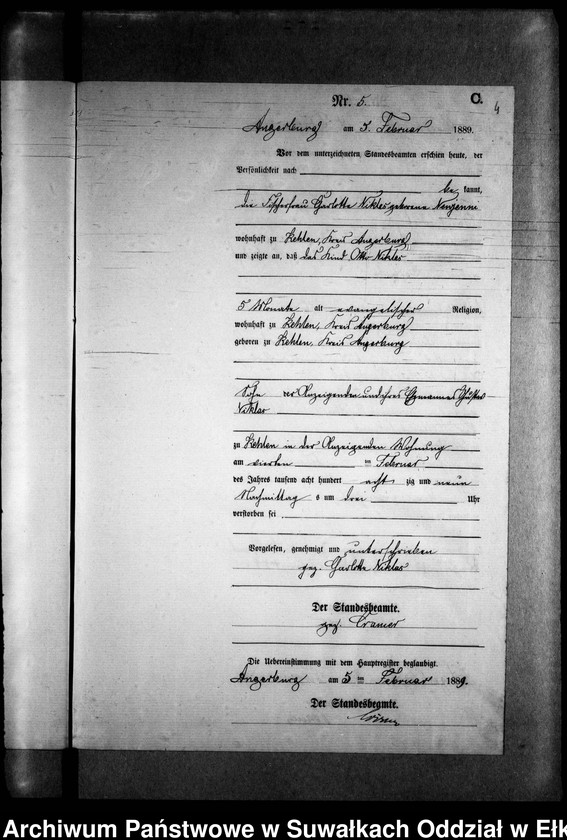 C.
Nr. 5.
4
Angerburg am 5. Februar 1889.
Vor dem unterzeichneten Standesbeamten erschien heute, der
Persönlichkeit nach
be kannt,
die Fischerfrau Charlotte Niklas geborene
wohnhaft zu Kehlen, Kreis Angerburg
und zeigte an, daß das Kind Otto Niklas
5 Monate alt evangelischer Religion,
wohnhaft zu Kehlen, Kreis Angerburg
geboren zu Kehlen, Kreis Angerburg
Sohn der Anzeigenden und ihres Ehemannes Gustav
Niklas
zu Kehlen in der Anzeigenden Wohnung
am vierten ten Februar
des Jahres tausend acht hundert acht zig und neun
Nachmittag s um drei Uhr
verstorben sei
Vorgelesen, genehmigt und unterschrieben
gez. Charlotte Niklas
Der Standesbeamte.
gez. Cramer
Die Uebereinstimmung mit dem Hauptregister beglaubigt.
Angerburg am 5 ten Februar 1889.
Der Standesbeamte.
Archiwum Państwowe w Suwałkach Oddział w Ełk